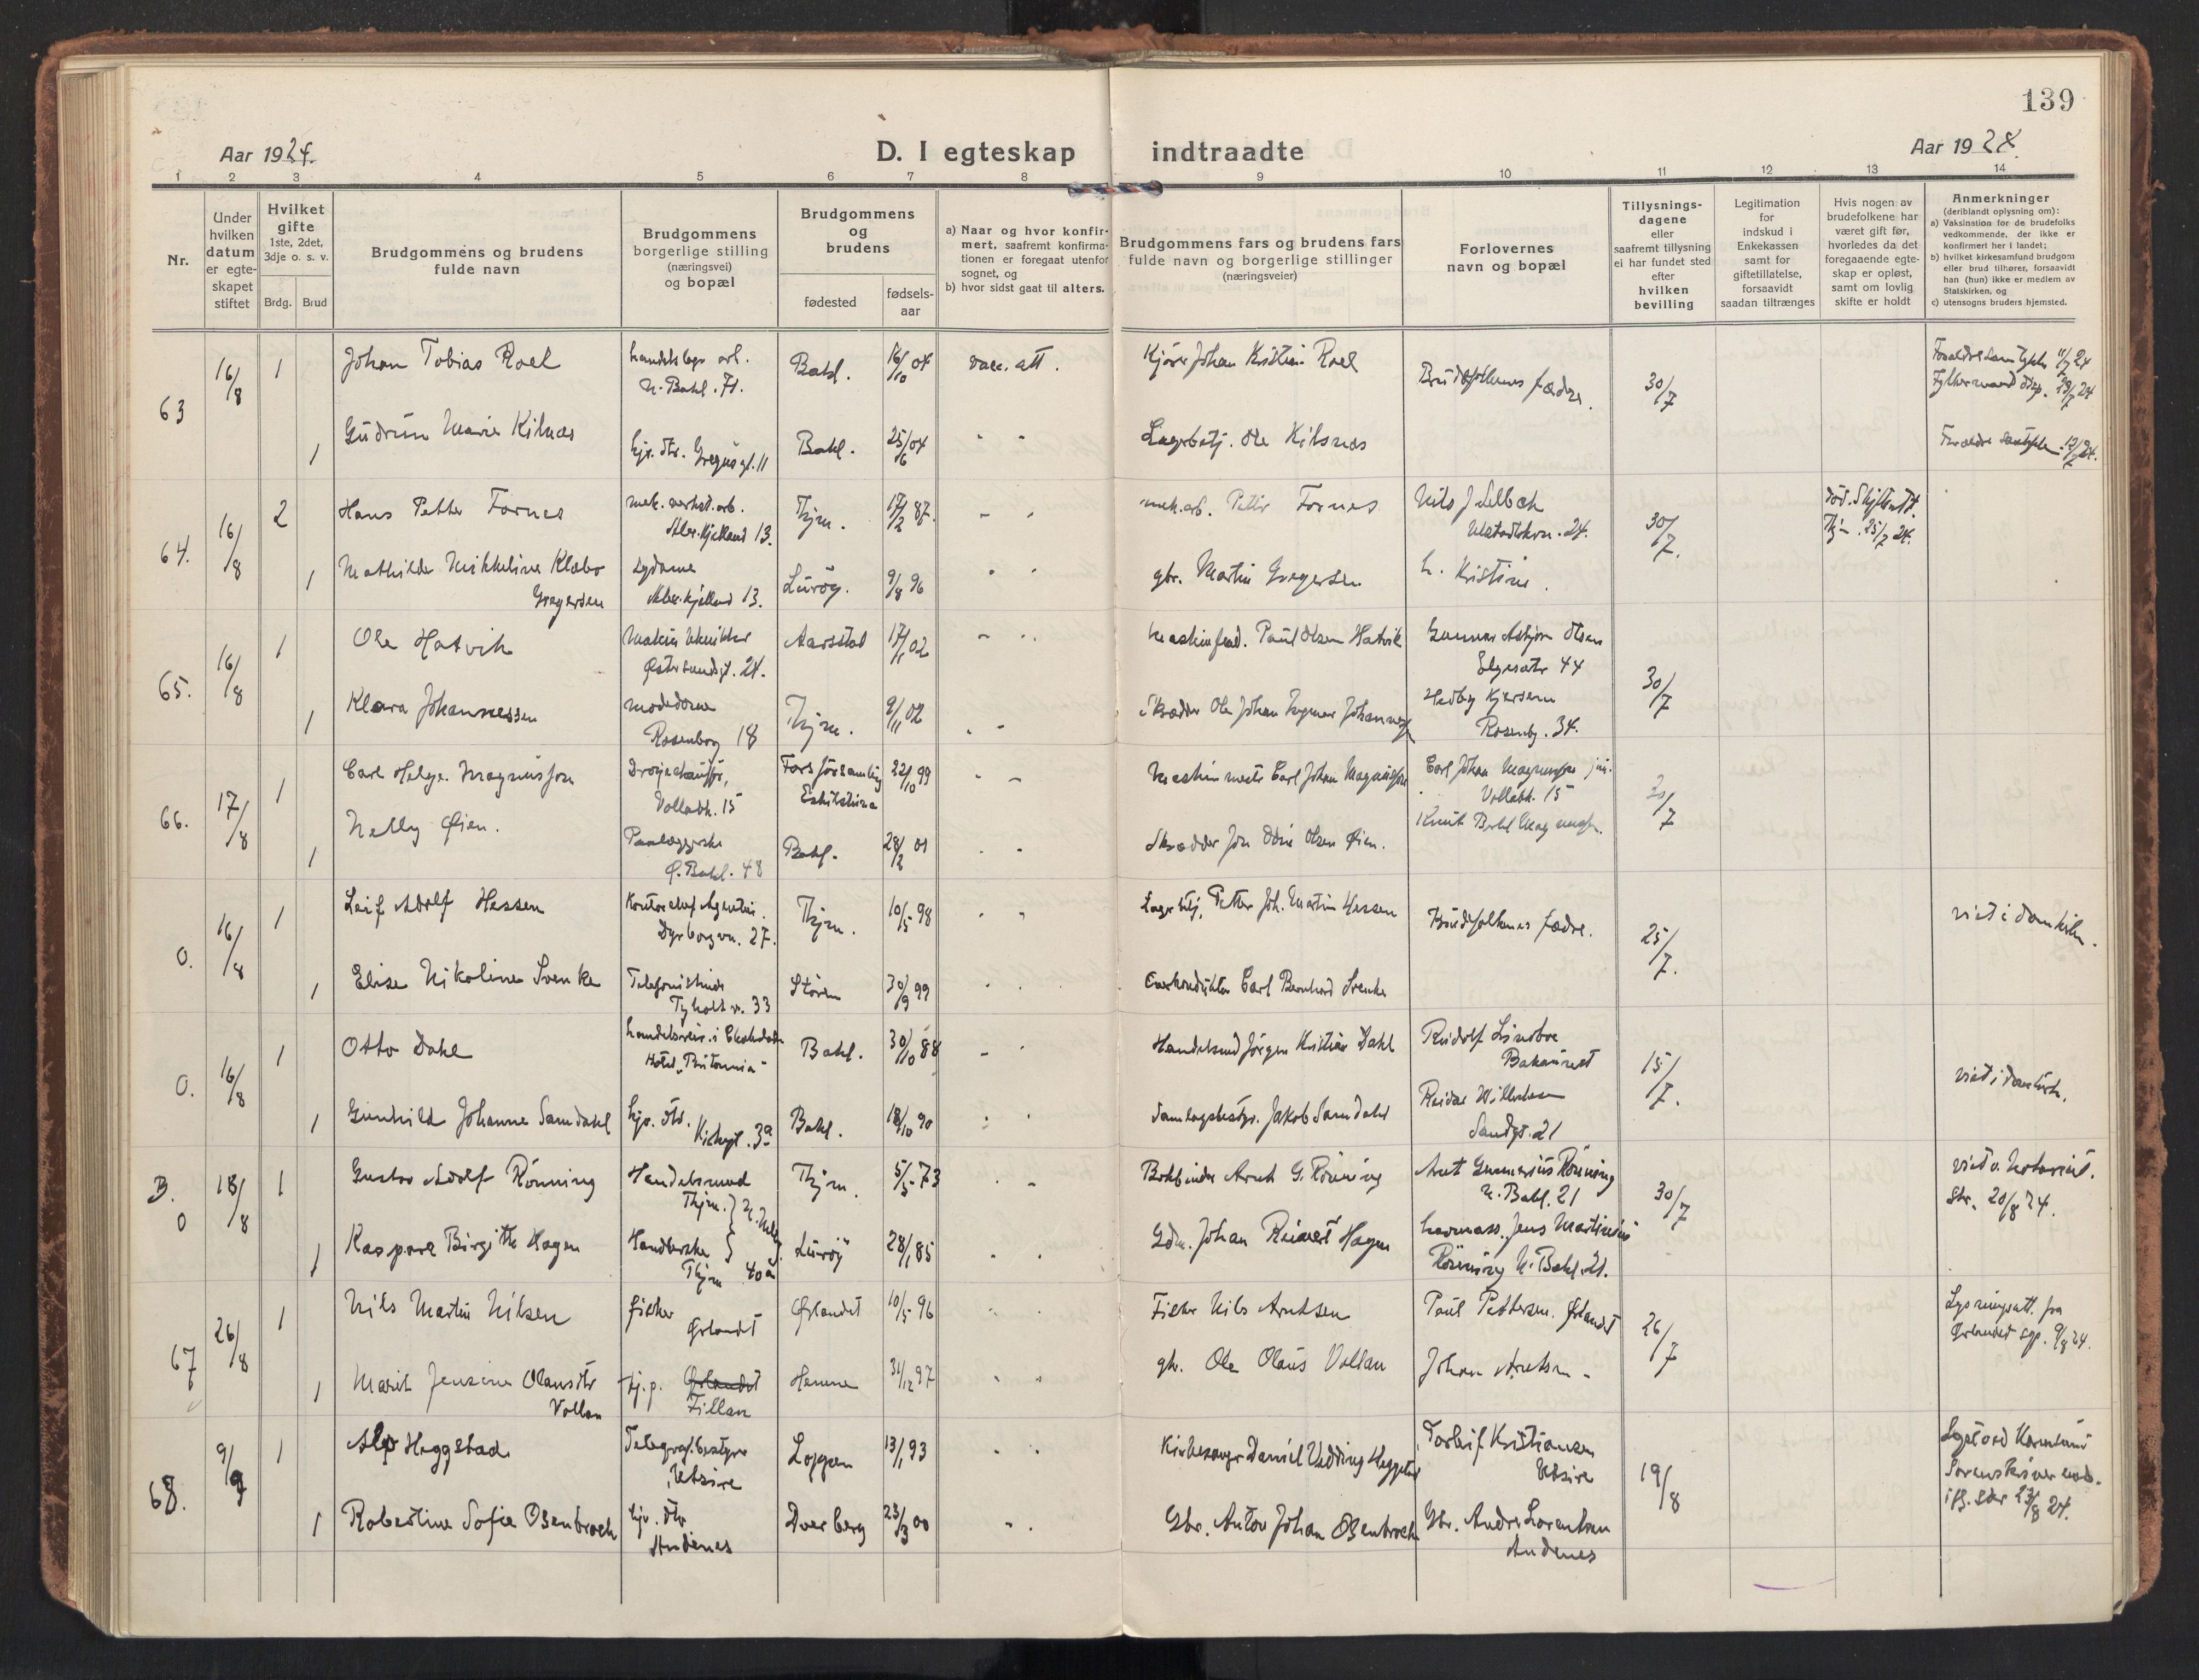 139
Aar 1924.
D. I egteskap indtraadte
Aar 1924.
1 2 3 4 5 6 7 8 9 10 11 12 13 14
Nr.
Under hvilken datum er egteskapet stiftet
Hvilket gifte
1ste, 2det, 3dje o. s. v.
Brdg. Brud
Brudgommens og brudens fulde navn
Brudgommens borgerlige stilling (næringsvei) og bopæl
Brudgommens og brudens
fødested
fødselsaar
a) Naar og hvor konfirmert, saafremt konfirmationen er foregaat utenfor sognet, og
b) hvor sidst gaat til alters.
Brudgommens fars og brudens fars fulde navn og borgerlige stillinger (næringsveier)
Forlovernes navn og bopæl
Tillysningsdagene eller saafremt tillysning ei har fundet sted efter hvilken bevilling
Legitimation for indskud i Enkekassen samt for giftetillatelse, forsaavidt saadan tiltrænges
Hvis nogen av brudefolkene har været gift før, hvorledes da det foregaaende egteskap er opløst, samt om lovlig skifte er holdt
Anmerkninger
(deriblandt oplysning om):
a) Vaksination for de brudefolks vedkommende, der ikke er konfirmert her i landet;
b) hvilket kirkesamfund brudgom eller brud tilhører, forsaavidt han (hun) ikke er medlem av Statskirken, og
c) utensogns bruders hjemsted.
63 16/8 1 Johan Tobias Roel
N. Bakl. 71.
Bakl. 16/10 04 vacc. att.
Kjører Johan Kristian Roel
Brudefolkenes fædre.
30/7
1 Gudrun Marie Kilnæs
hjv. dtr.
Bakl. 25/6 04 " "
Ole Kilsnæs
64. 16/8 2 Hans Petter Fornes
mek. verkst. arb.
Alex. Kielland 13.
Thjm. 17/2 87. " "
mek. arb. Petter Fornes
Ulstadløkvn. 24.
30/7.
1 Mathilde Mikkeline Klæbo
Gregersen
sydame
Alex. Kjelland 13.
Lurøy. 9/8 96 " "
gbr. Martin Gregersen
h. Kristine.
65. 16/8 1 Ole Hatvik
Østersundsgt. 24.
Aarstad 17/1 02 " "
Paul Olsen Hatvik
Gunnar Asbjørn Olsen
Elgesæter 44
30/7
1 Klara Johannessen
modedame
Rosenborg 18
Thjm. 9/11 02 " "
Skrædder Ole Johan Ingvar Johannessen
Rosenbg. 34.
66. 17/8 1 Carl Helge Magnusson
Vollabk. 15
Fors församling
Eskilstuna
22/10 99 " "
Carl Johan Magnusson
Carl Johan Magnusson jun.
Vollabk. 15
30/7
1 Nelly Øien.
Ø. Bakl. 48
Bakl. 28/2 01 " "
Skrædder Jon Odin Olsen Øien.
0. 16/8 1 Leif Adolf Hessen
Dyrborgvn. 27.
Thjm. 10/5 98 " "
Petter Joh. Martin Hessen
Brudefolkenes fædre.
25/7.
viet i Domkirken.
1 Elise Nikoline Svenke
Telefonistinde
Tyholtvn. 33
Støren 30/9 99 " "
Overkonduktør Carl Bernhard Svenke
0. 16/8 1 Otto Dahl
Hotel „Britannia"
Bakl. 30/10 88 " "
Handelsmd Jørgen Kristian Dahl
Rudolf Lindboe
Bakaunet
15/7.
viet i Domkirk.
1 Gunhild Johanne Samdahl
hjv. dtr.
Bakl. 18/10 90 " "
Jakob Samdahl
Reidar Willumsen
Sandgt. 21
B. 0 18/8 1 Gustav Adolf Rønning
Handelsmand
Thjm.
Thjm. 5/5 73 " "
Bokbinder Arnt G. Rønning
Arnt Gunnerius Rønning
N. Bakl. 21
30/7
viet v. Notarius.
Str. 20/8 24.
1 Kaspara Birgitte Hagen
Handlerske
Thjm. 40a
Lurøy 28/1 85 " "
Gdm. Johan Reinert Hagen
havnass. Jens Martinius
Rønning N. Bakl. 21.
67 26/8 1 Nils Martin Nilsen
fisker
Ørlandet
Ørlandet 10/5 96 " "
Fisker Nils Arntsen
Paul Pettersen. Ørlandet
26/7
Lysningsatt. fra
Ørlandet sgp. 9/8 24.
1 Marit Jensine Olausdtr
Vollan
tj.p. Ørlandet
Fillan
Hemne 31/12 97 " "
gbr. Ole Olaus Vollan
Johan Arntsen "
68. 9/9 1 Alf Heggstad
Telegrafbestyrer
Utsire
Loppen 13/1 93 " "
Kirkesanger Daniel Vedding Heggstad
Torleif Kristiansen
Utsire
19/8
1 Robertine Sofie Osenbroch
hjv. dtr
Andenes
Dverberg 23/3 00 " "
Gbr. Anton Johan Osenbroch
Gbr. Andr. Lorentsen
Andenes